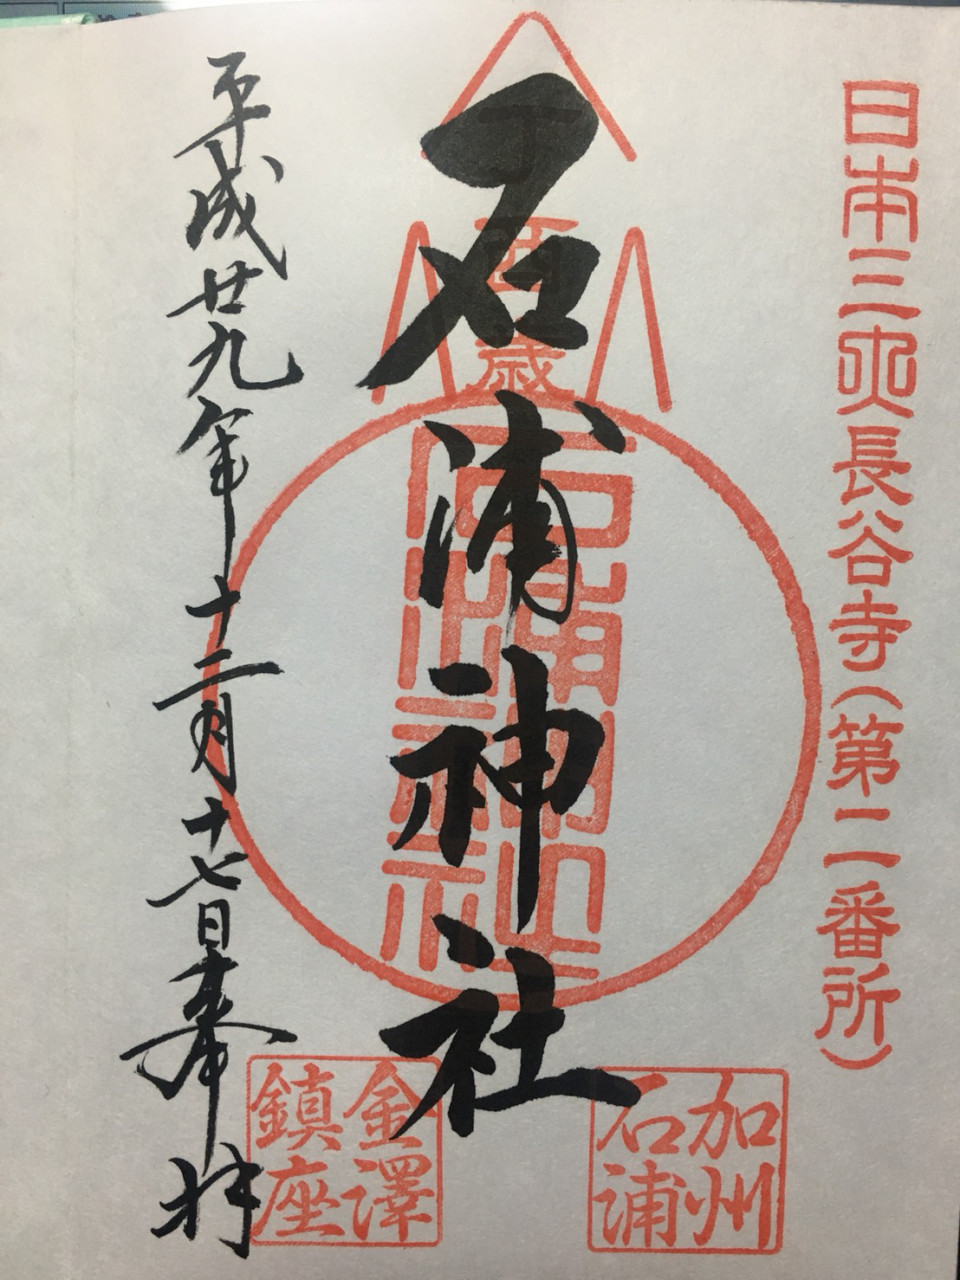 日本三大長谷寺（第二番所）
丁酉歳
石浦神社
加州
石浦
金澤
鎮座
平成廿九年十二月十七日奉拝